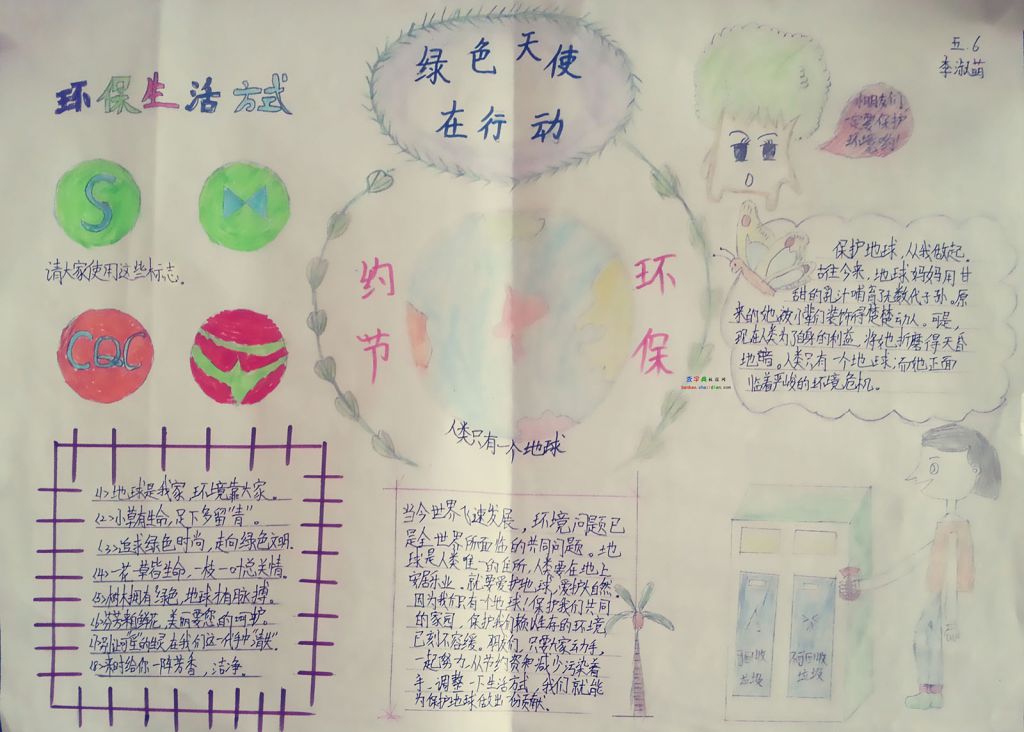 绿色天使
在行动
五.6
李淑萌
环保生活方式
朋友们
一定要保护
环境哟!
S
请大家使用这些标志。
CQC
节约
环保
人类只有一个地球
保护地球,从我做起。
古往今来,地球妈妈用甘
甜的乳汁哺育了无数代子孙。原
来的她被小辈们装饰得楚楚动人。可是,
现在人类为了自身的利益,将她折磨得天昏
地暗。人类只有一个地球;而她正面
临着严峻的环境危机。
(1)地球是我家,环境靠大家。
(2)小草有生命,足下多留“青”。
(3)追求绿色时尚,走向绿色文明.
(4)一花一草皆生命,一枝一叶总关情.
(5)树木拥有绿色,地球才有脉搏.
(6)芬芳来自鲜花,美丽需要您的呵护.
(7)别让可爱的绿在我们这一代手中“消失”.
(8)来时给你一阵芳香,洁净.
当今世界飞速发展,环境问题已
是全世界所面临的共同问题。地
球是人类唯一的住所,人类要在地上
安居乐业,就要爱护地球,爱护大自然
因为我们只有一个地球!保护我们共同
的家园,保护我们赖以生存的环境
已刻不容缓。朋友们,只要大家动手,
一起努力,从节约资源减少污染着
手,调整一下生活方式,我们就能
为保护地球做出一份贡献。
可回收
垃圾
不可回收
垃圾
查字典教据网